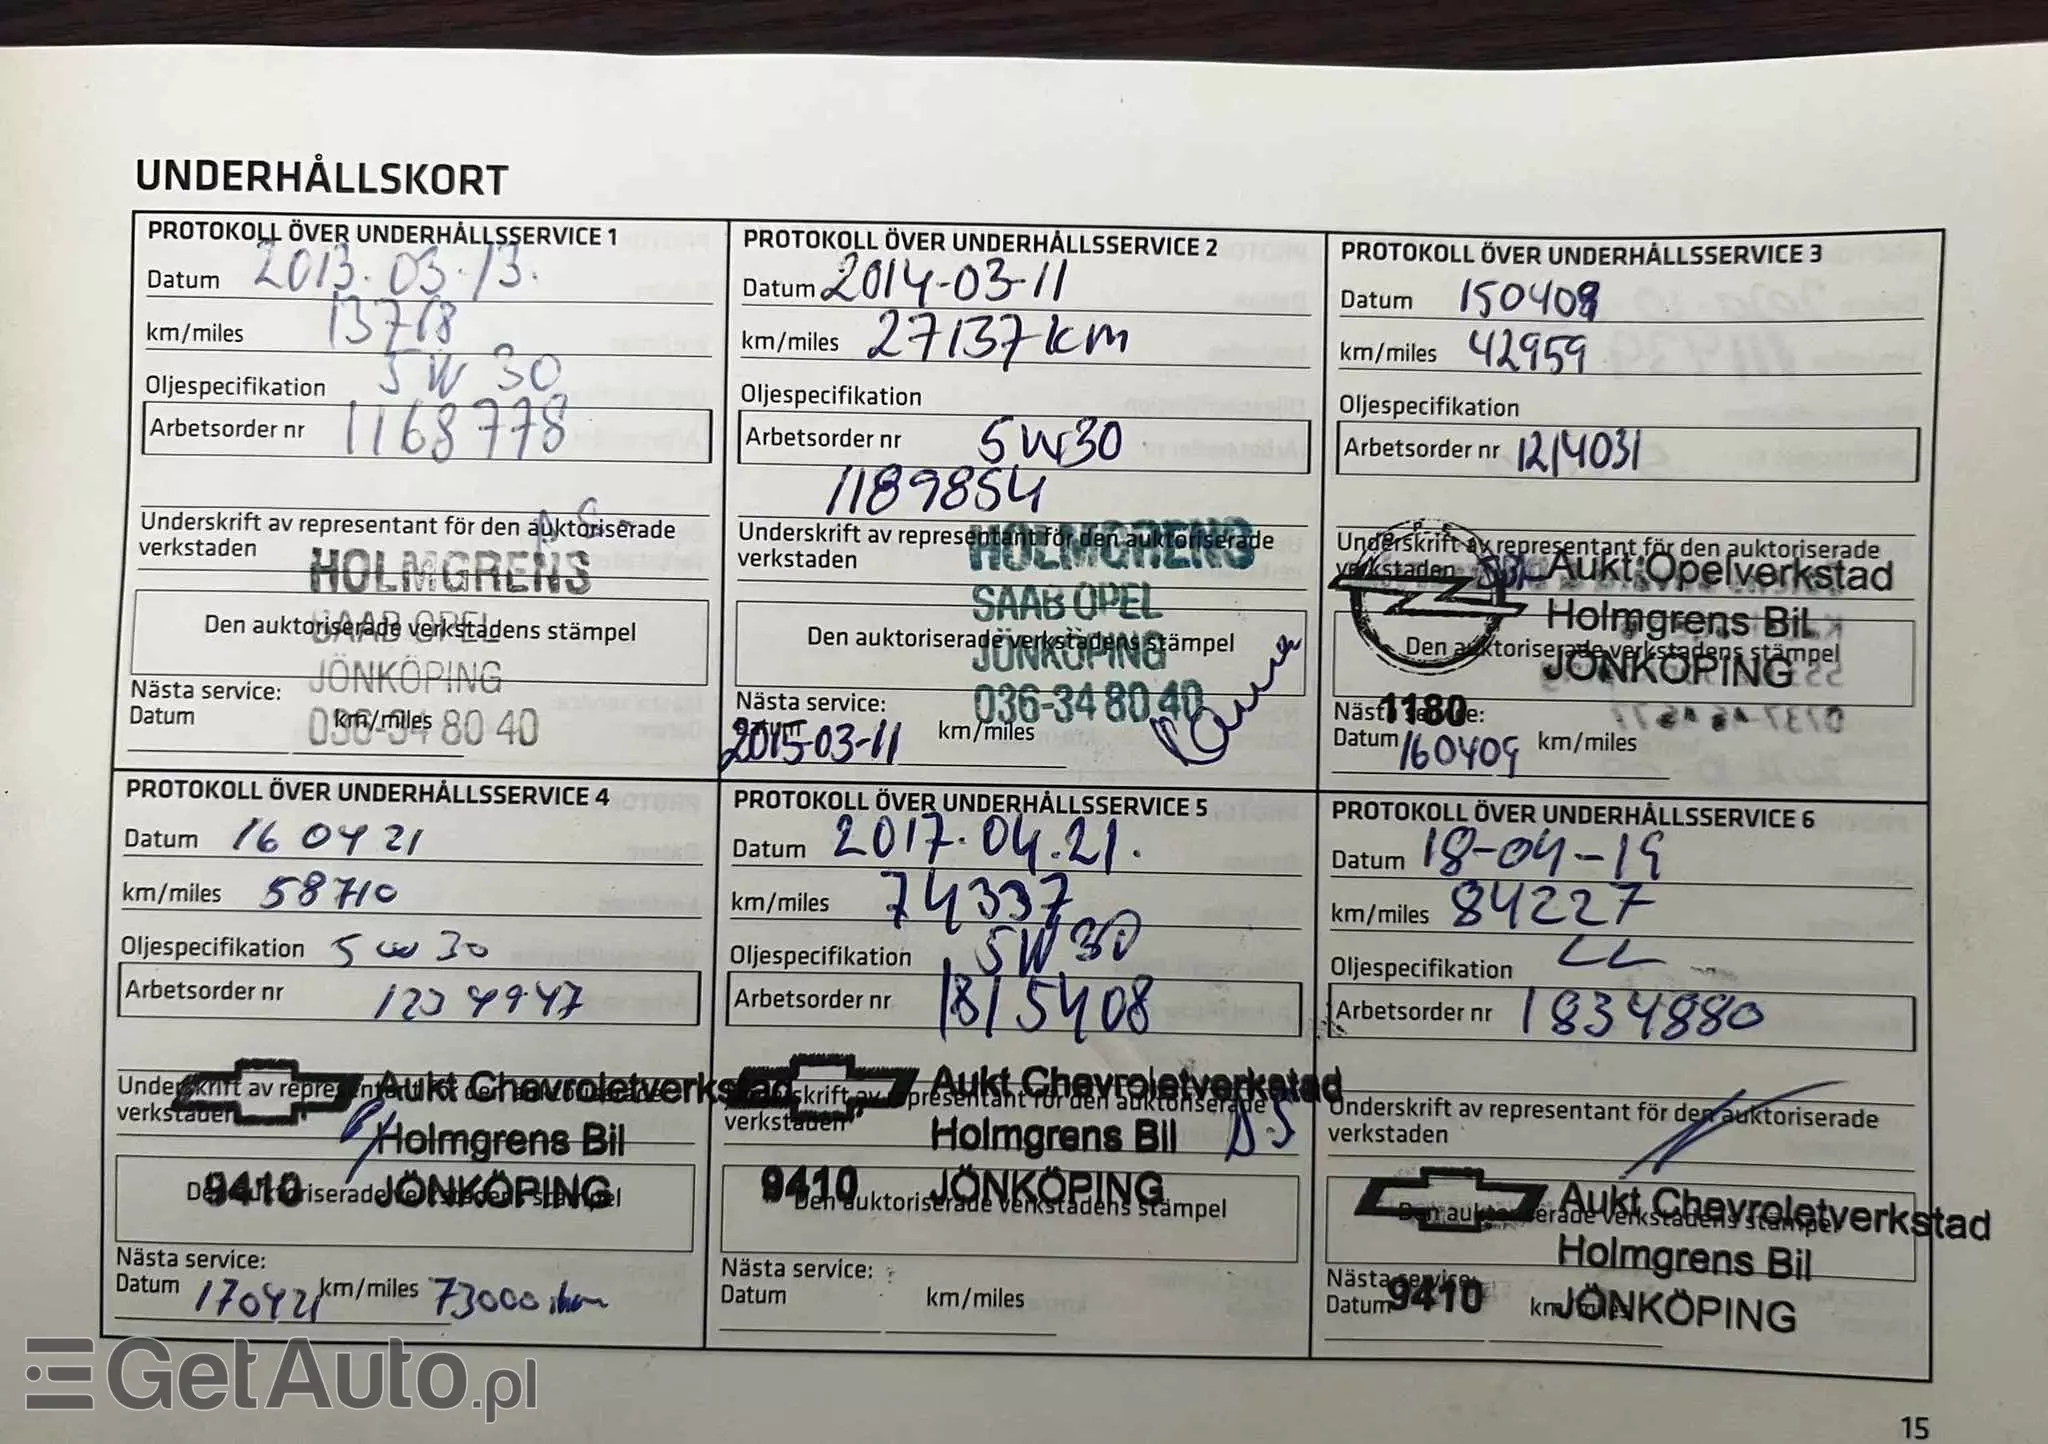 UNDERHÅLLSKORT
PROTOKOLL ÖVER UNDERHÅLLSSERVICE 1
Datum 2013.03.13.
km/miles 13718
Oljespecifikation 5W 30
Arbetsorder nr 1168778
Underskrift av representant för den auktoriserade
verkstaden
HOLMGRENS
SAAB OPEL
Den auktoriserade verkstadens stämpel
JÖNKÖPING
Nästa service:
Datum km/miles
036-34 80 40
PROTOKOLL ÖVER UNDERHÅLLSSERVICE 2
Datum 2014-03-11
km/miles 27137km
Oljespecifikation
Arbetsorder nr 5W30
1189854
Underskrift av representant för den auktoriserade
verkstaden
HOLMGRENS
SAAB OPEL
Den auktoriserade verkstadens stämpel
JÖNKÖPING
036-34 80 40
Nästa service:
Datum 2015-03-11 km/miles
PROTOKOLL ÖVER UNDERHÅLLSSERVICE 3
Datum 150408
km/miles 42959
Oljespecifikation
Arbetsorder nr 1214031
Underskrift av representant för den auktoriserade
verkstaden
Aukt Opelverkstad
Holmgrens Bil
Den auktoriserade verkstadens stämpel
JÖNKÖPING
1180
Nästa service:
Datum 160409 km/miles
PROTOKOLL ÖVER UNDERHÅLLSSERVICE 4
Datum 16 04 21
km/miles 58710
Oljespecifikation 5w30
Arbetsorder nr 1234947
Underskrift av representant för den auktoriserade
verkstaden
Aukt Chevroletverkstad
Holmgrens Bil
9410 JÖNKÖPING
Den auktoriserade verkstadens stämpel
Nästa service:
Datum 170421 km/miles 73000
PROTOKOLL ÖVER UNDERHÅLLSSERVICE 5
Datum 2017.04.21.
km/miles 74337
Oljespecifikation 5W30
Arbetsorder nr 1815408
Underskrift av representant för den auktoriserade
verkstaden
Aukt Chevroletverkstad
Holmgrens Bil
9410 JÖNKÖPING
Den auktoriserade verkstadens stämpel
Nästa service:
Datum km/miles
PROTOKOLL ÖVER UNDERHÅLLSSERVICE 6
Datum 18-04-19
km/miles 84227
Oljespecifikation LL
Arbetsorder nr 1834880
Underskrift av representant för den auktoriserade
verkstaden
Aukt Chevroletverkstad
Den auktoriserade verkstadens stämpel
Holmgrens Bil
9410 JÖNKÖPING
Nästa service:
Datum km/miles
GetAuto.pl
15